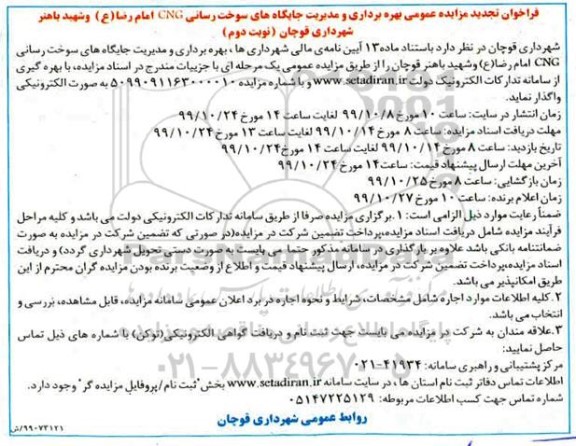 فراخوان تجدید مزایده عمومی بهره برداری و مدیریت جایگاه های سوخت رسانی CNG امام رضا(ع) وشهید باهنر
شهرداری قوچان (نوبت دوم)
شهرداری قوچان در نظر دارد باستناد ماده۱۳ آیین نامه‌ی مالی شهرداری ها ، بهره برداری و مدیریت جایگاه های سوخت رسانی
CNG امام رضا(ع) وشهید باهنر قوچان را از طریق مزایده عمومی یک مرحله ای با جزییات مندرج در اسناد مزایده، با بهره گیری
از سامانه تدارکات الکترونیک دولت www.setadiran.ir و با شماره مزایده ۵۰۹۹۰۹۱۱۶۳۰۰۰۰۱۰ به صورت الکترونیکی
واگذار نماید.
زمان انتشار در سایت: ساعت ۱۰ مورخ ۹۹/۱۰/۸ لغایت ساعت ۱۴ مورخ ۹۹/۱۰/۲۴
مهلت دریافت اسناد مزایده: ساعت ۸ مورخ ۹۹/۱۰/۱۴ لغایت ساعت ۱۳ مورخ ۹۹/۱۰/۲۴
تاریخ بازدید: ساعت ۸ مورخ ۹۹/۱۰/۱۴ لغایت ساعت ۱۴ مورخ ۹۹/۱۰/۲۴
آخرین مهلت ارسال پیشنهاد قیمت: ساعت ۱۴ مورخ ۹۹/۱۰/۲۴
زمان بازگشایی: ساعت ۸ مورخ ۹۹/۱۰/۲۵
زمان اعلام برنده: ساعت ۱۰ مورخ ۹۹/۱۰/۲۷
ضمناً رعایت موارد ذیل الزامی است: ۱.برگزاری مزایده صرفا از طریق سامانه تدارکات الکترونیکی دولت می باشد و کلیه مراحل
فرآیند مزایده شامل دریافت اسناد مزایده،پرداخت تضمین شرکت در مزایده(در صورتی که تضمین شرکت در مزایده به صورت
ضمانتنامه بانکی باشد علاوه بر بارگذاری در سامانه مذکور حتما می بایست به صورت دستی تحویل شهرداری گردد) و دریافت
اسناد مزایده،پرداخت تضمین شرکت در مزایده، ارسال پیشنهاد قیمت و اطلاع از وضعیت برنده بودن مزایده گران محترم از این
طریق امکانپذیر می باشد.
۲.کلیه اطلاعات موارد اجاره شامل مشخصات، شرایط و نحوه اجاره در برد اعلان عمومی سامانه مزایده، قابل مشاهده، بررسی و
انتخاب می باشد.
۳.علاقه مندان به شرکت در مزایده می بایست جهت ثبت نام و دریافت گواهی الکترونیکی(توکن) با شماره های ذیل تماس
حاصل نمایید:
مرکز پشتیبانی و راهبری سامانه: ۴۱۹۳۴-۰۲۱
اطلاعات تماس دفاتر ثبت نام استان ها ، در سایت سامانه www.setadiran.ir بخش"ثبت نام/پروفایل مزایده گر" وجود دارد.
شماره تماس جهت کسب اطلاعات مربوطه: ۰۵۱۴۷۲۲۵۱۲۹
روابط عمومی شهرداری قوچان
۹۹۰۷۳۱۲۱/ش
۰۲۱-۸۸۳۴۹۶۷۰-۵